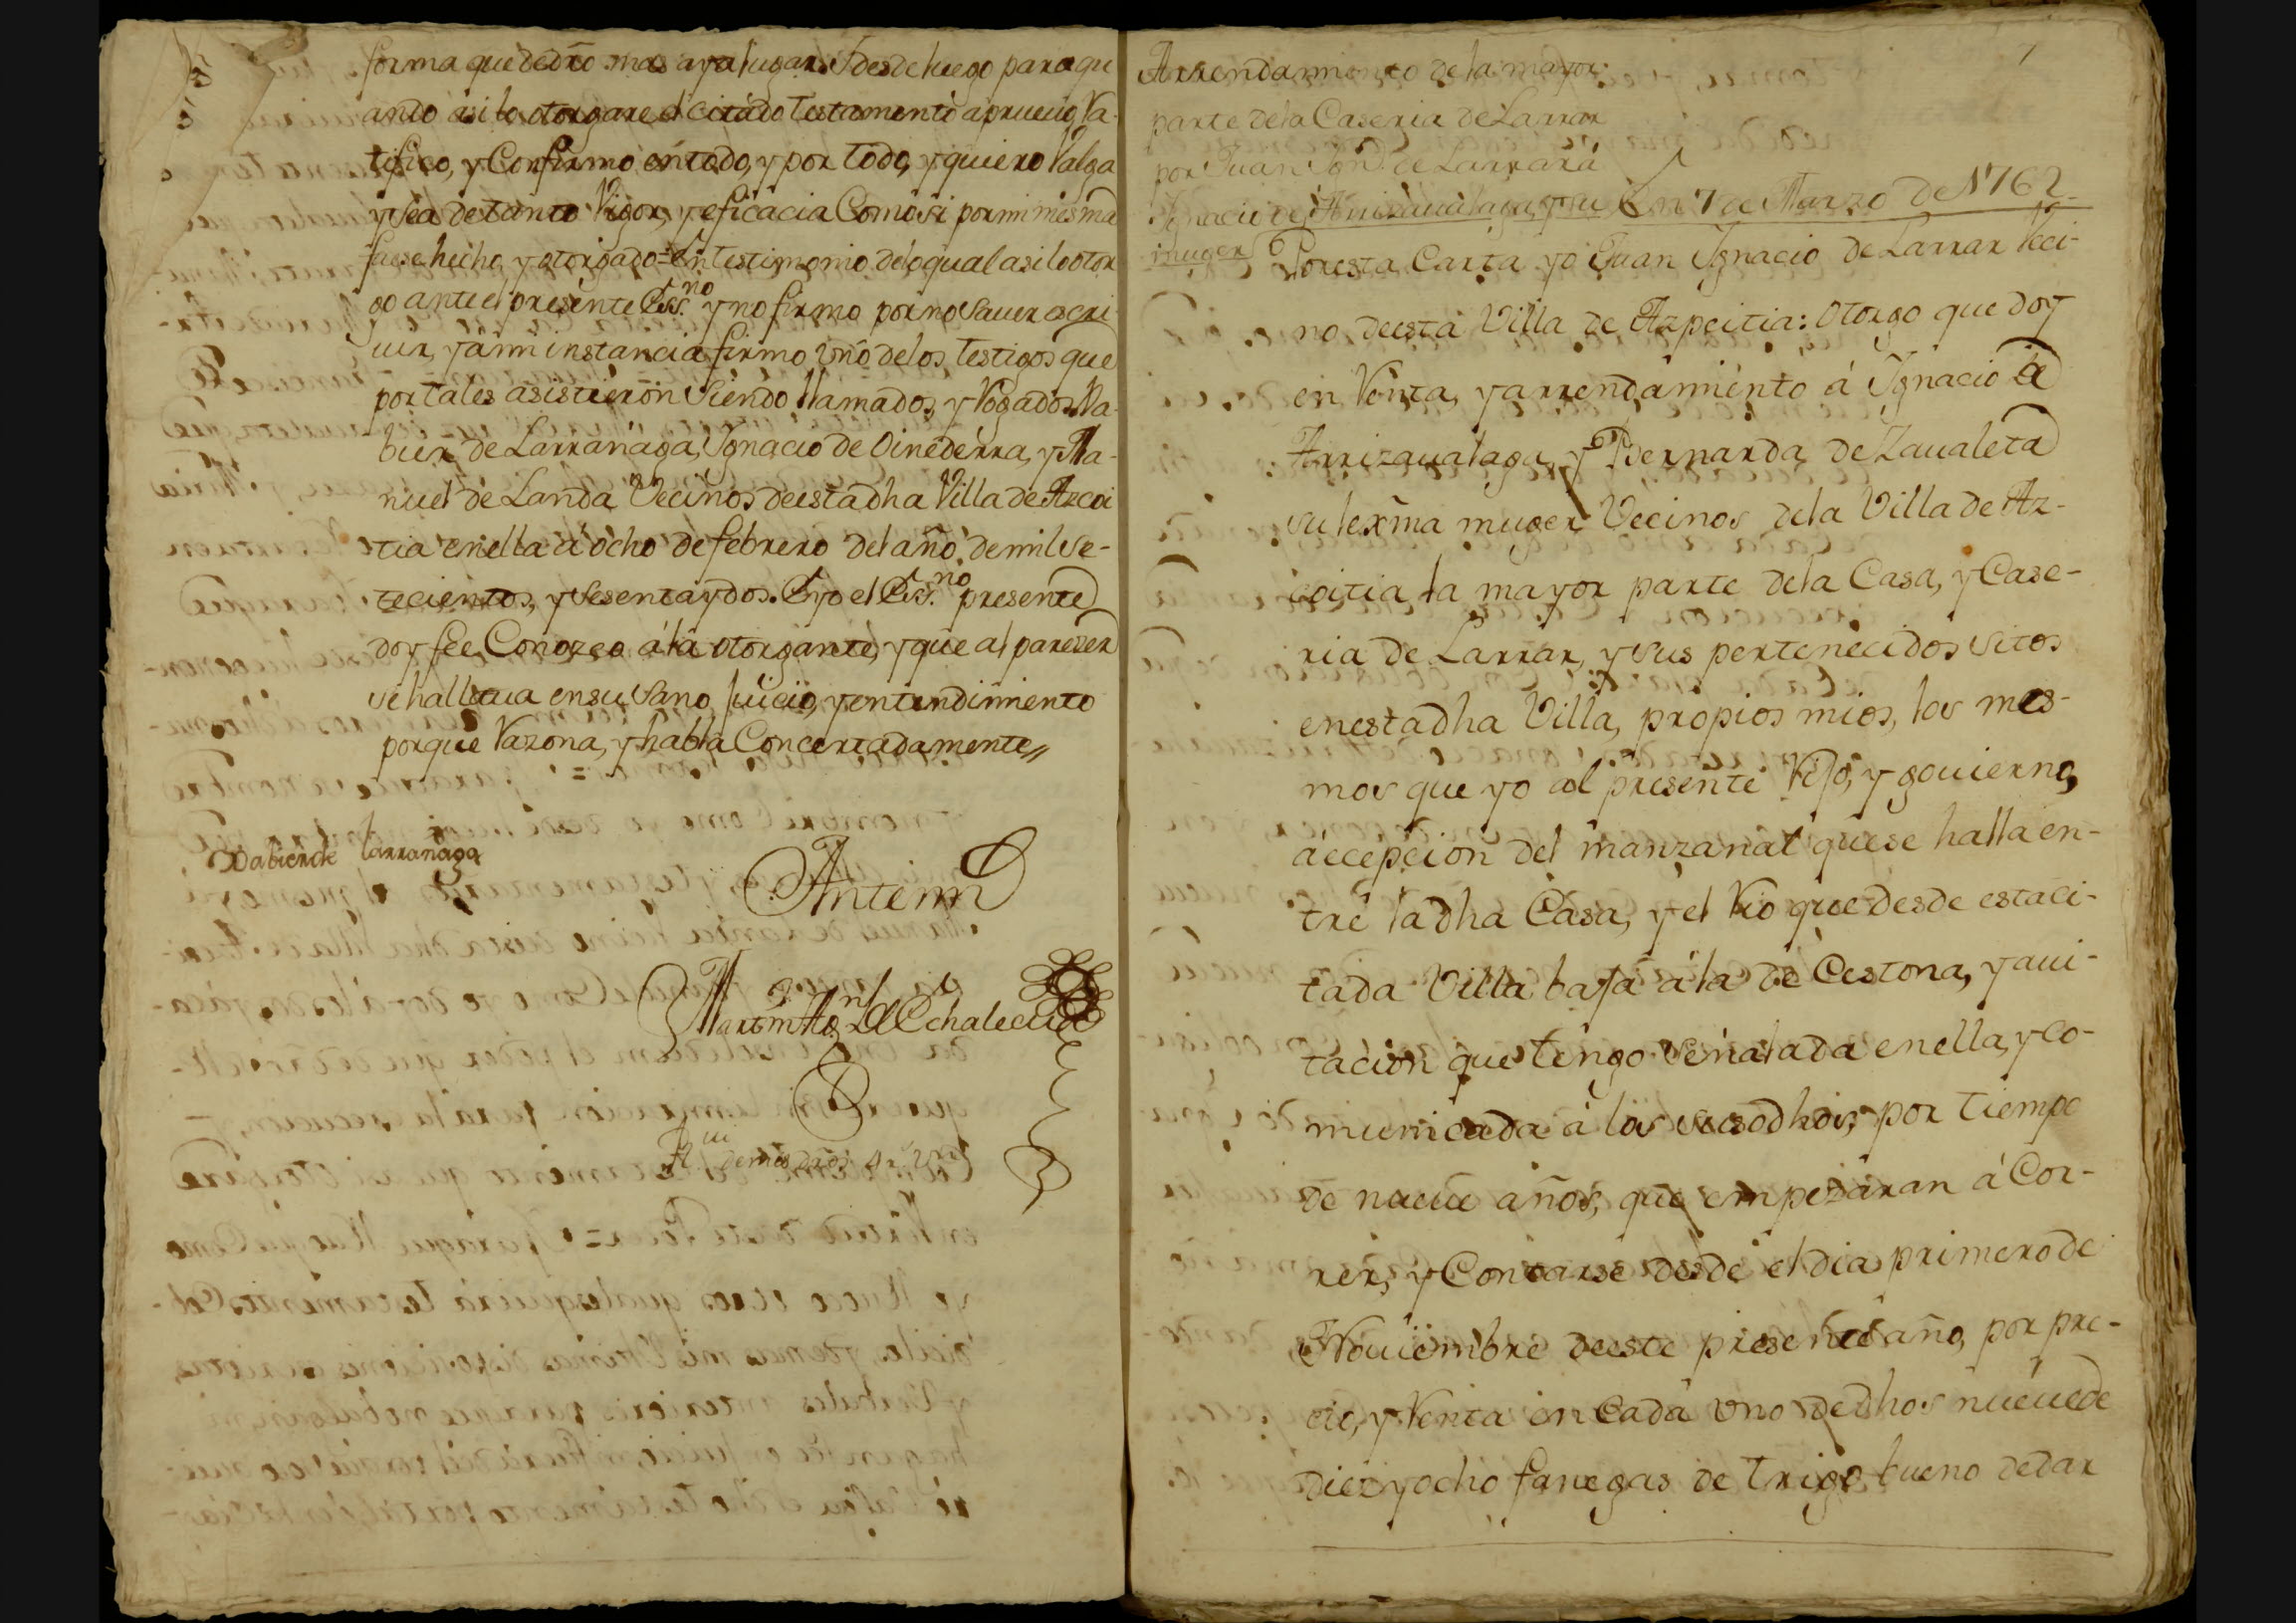 forma que de dro mas aya lugar. Y desde luego para qu
ando asi lo otorgare el citado Testamento apruevo Ra-
tifico, y Confirmo en todo, y por todo, y quiero Valga
y sea de tanto Vigor, y eficacia Como si por mi mesma
fuese hecho, y otorgado = En testimonio delo qual asi lo otor
go ante el presente Ess.no y no firmo por no Saver escri
uir, y a mi instancia firmo Uno delos Testigos que
por tales asistieron Siendo llamados, y Rogados Xa-
bier de Larrañaga, Ygnacio de Oinederra, y Ma-
nuel de Landa Vecinos de esta dha Villa de Azcoi
tia en ella à ocho de febrero del año de mil se-
tecientos, y Sesenta y dos. E yo el Ess.no presente
doy fee Conozco à la otorgante, y que al parezer
se hallaua en su Sano Juicio, y entendimiento
porque Razona, y habla Concertadamente
Xabier de larrañaga
Ante mi
Martin Ag.n de Echalecu
1
Arrendamiento de la mayor
parte de la Caseria de Larrar
por Juan Ygn.o de Larrar à
Ygnacio de Arrizaualaga, y su
muger
En 7 de Marzo de 1762
Por esta Carta yo Juan Ygnacio de Larrar Veci-
no de esta Villa de Azpeitia: Otorgo que doy
en Renta, y arrendamiento á Ygnacio de
Arrizaualaga, y Bernarda de Zaualeta
su lexma muger Vecinos de la Villa de Az-
coitia, la mayor parte dela Casa, y Case-
ria de Larrar, y sus pertenecidos sitos
en esta dha Villa, propios mios, los mes-
mos que yo al presente Rijo, y gouierno,
à ecepcion del manzanal que se halla en-
tre la dha Casa, y el Rio que desde esta ci-
tada Villa baja à la de Cestona, y aui-
tacion que tengo señalada en ella, y co-
municada à los susodhos, por tiempo
de nueue años, que empezaran à Cor-
rer, y Contarse desde el dia primero de
Nouiembre de este presente año, por pre-
cio, y Renta en Cada uno de dhos nueue de
diez y ocho fanegas de trigo bueno de dar